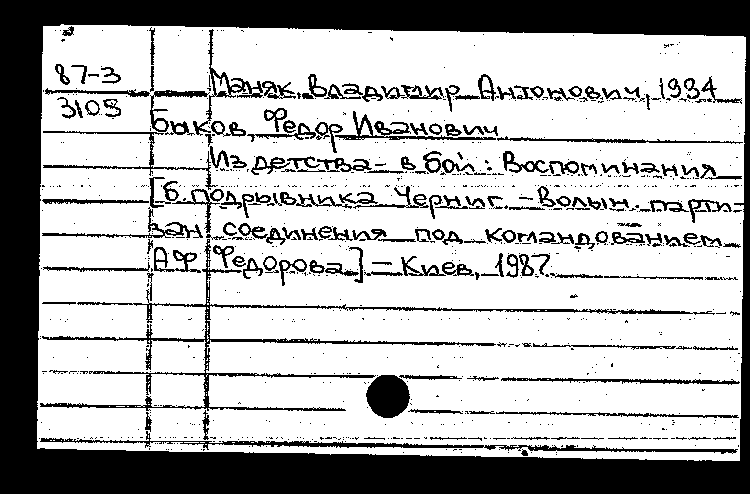 87-3 Маняк, Владимир Антонович, 1934
3105 Быков, Федор Иванович
Из детства - в бой : Воспоминания
[б. подрывника Черниг. - Волын. парти-
зан. соединения под командованием
А.Ф. Федорова] = Киев, 1987.